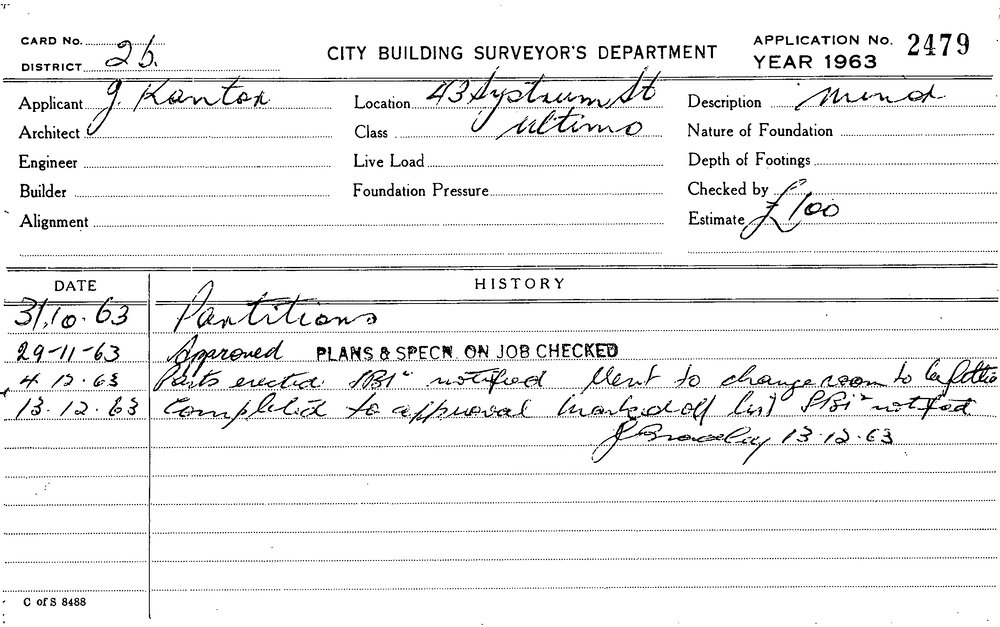 CARD No.
DISTRICT 2b.
CITY BUILDING SURVEYOR'S DEPARTMENT
APPLICATION No. 2479
YEAR 1963
Applicant J. Kantor
Location 43 Systrum St
Description Minor
Architect
Class Ultimo
Nature of Foundation
Engineer
Live Load
Depth of Footings
Builder
Foundation Pressure
Checked by
Alignment
Estimate £100
DATE HISTORY
31.10.63 Partitions
29-11-63 Approved PLANS & SPECN. ON JOB CHECKED
4.12.63 Parts erected notified Vent to change room to be
13.12.63 Completed to approval marked off list notified
13.12.63
C of S 8488